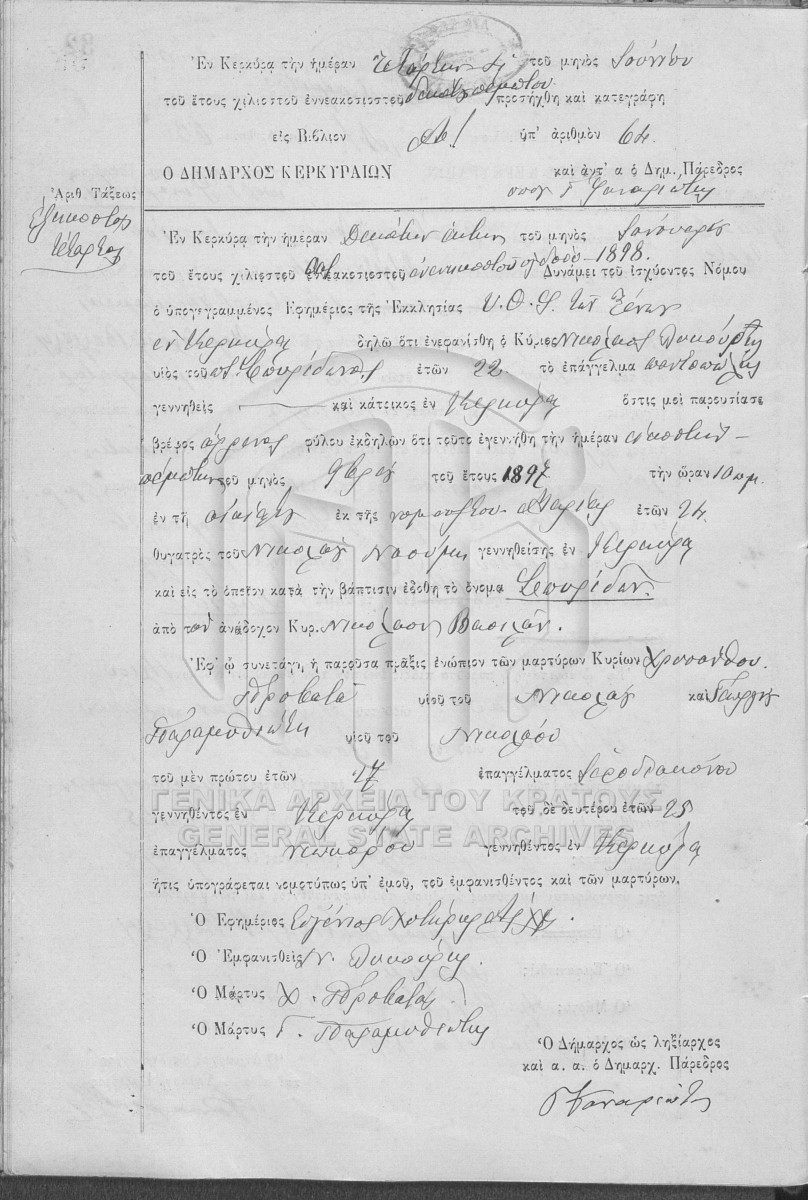 Ἐν Κερκύρᾳ τὴν ἡμέραν Τετάρτην τοῦ μηνὸς Ἰουνίου
τοῦ ἔτους χιλιοστοῦ ἐννεακοσιοστοῦ δεκάτου πέμπτου προσήχθη καὶ κατεγράφη
εἰς Βιβλίον ὑπ' ἀριθμὸν 64
Ο ΔΗΜΑΡΧΟΣ ΚΕΡΚΥΡΑΙΩΝ καὶ ἀντ' α ὁ Δημ. Πάρεδρος
Ἀριθ Τάξεως
Γ Φαναριώτης
Ἑξηκοστὸς
τέταρτος
Ἐν Κερκύρᾳ τὴν ἡμέραν Δεκάτην ἕκτην τοῦ μηνὸς Ἰανουαρίου
τοῦ ἔτους χιλιοστοῦ ἐννεακοσιοστοῦ ἐνενηκοστοῦ ὀγδόου – 1898. Δυνάμει τοῦ ἰσχύοντος Νόμου
ὁ ὑπογεγραμμένος Ἐφημέριος τῆς Ἐκκλησίας Υ. Θ. τῶν Ξένων
ἐν Κερκύρᾳ δηλῶ ὅτι ἐνεφανίσθη ὁ Κύριος Νικόλαος
υἱὸς τοῦ Σπυρίδωνος ἐτῶν 22 τὸ ἐπάγγελμα παντοπώλης
γεννηθεὶς καὶ κάτοικος ἐν Κερκύρᾳ ὅστις μοὶ παρουσίασε
βρέφος ἄρρενος φύλου ἐκδηλῶν ὅτι τοῦτο ἐγεννήθη τὴν ἡμέραν εἰκοστὴν –
πέμπτην τοῦ μηνὸς 9βρίου τοῦ ἔτους 1897 τὴν ὥραν 10 πμ.
ἐν τῇ οἰκίᾳ ἐκ τῆς νομ. συζύγου Μαρίας ἐτῶν 24
θυγατρὸς τοῦ Νικολάου Νασούμη γεννηθείσης ἐν Κερκύρᾳ
καὶ εἰς τὸ ὁποῖον κατὰ τὴν βάπτισιν ἐδόθη τὸ ὄνομα Σπυρίδων.
ἀπὸ τὸν ἀνάδοχον Κυρ. Νικόλαον Βασιλᾶν.
Ἐφ' ᾧ συνετάγη ἡ παροῦσα πρᾶξις ἐνώπιον τῶν μαρτύρων Κυρίων Χρυσάνθου
Προβατᾶ υἱοῦ τοῦ Νικολάου καὶ Γεωργίου
Παραμυθιώτη υἱοῦ τοῦ Νικολάου
τοῦ μὲν πρώτου ἐτῶν 27 ἐπαγγέλματος Ἱεροδιακόνου
γεννηθέντος ἐν Κερκύρᾳ τοῦ δὲ δευτέρου ἐτῶν 25
ΓΕΝΙΚΑ ΑΡΧΕΙΑ ΤΟΥ ΚΡΑΤΟΥΣ
GENERAL STATE ARCHIVES
ἐπαγγέλματος νεωκόρου γεννηθέντος ἐν Κερκύρᾳ
ἥτις ὑπογράφεται νομοτύπως ὑπ' ἐμοῦ, τοῦ ἐμφανισθέντος καὶ τῶν μαρτύρων.
Ὁ Ἐφημέριος Εὐγένιος
Ὁ Ἐμφανισθεὶς Ν.
Ὁ Μάρτυς Χ. Προβατᾶς
Ὁ Μάρτυς Γ. Παραμυθιώτης
Ὁ Δήμαρχος ὡς ληξίαρχος
καὶ α. α. ὁ Δημαρχ. Πάρεδρος
Γ Φαναριώτης